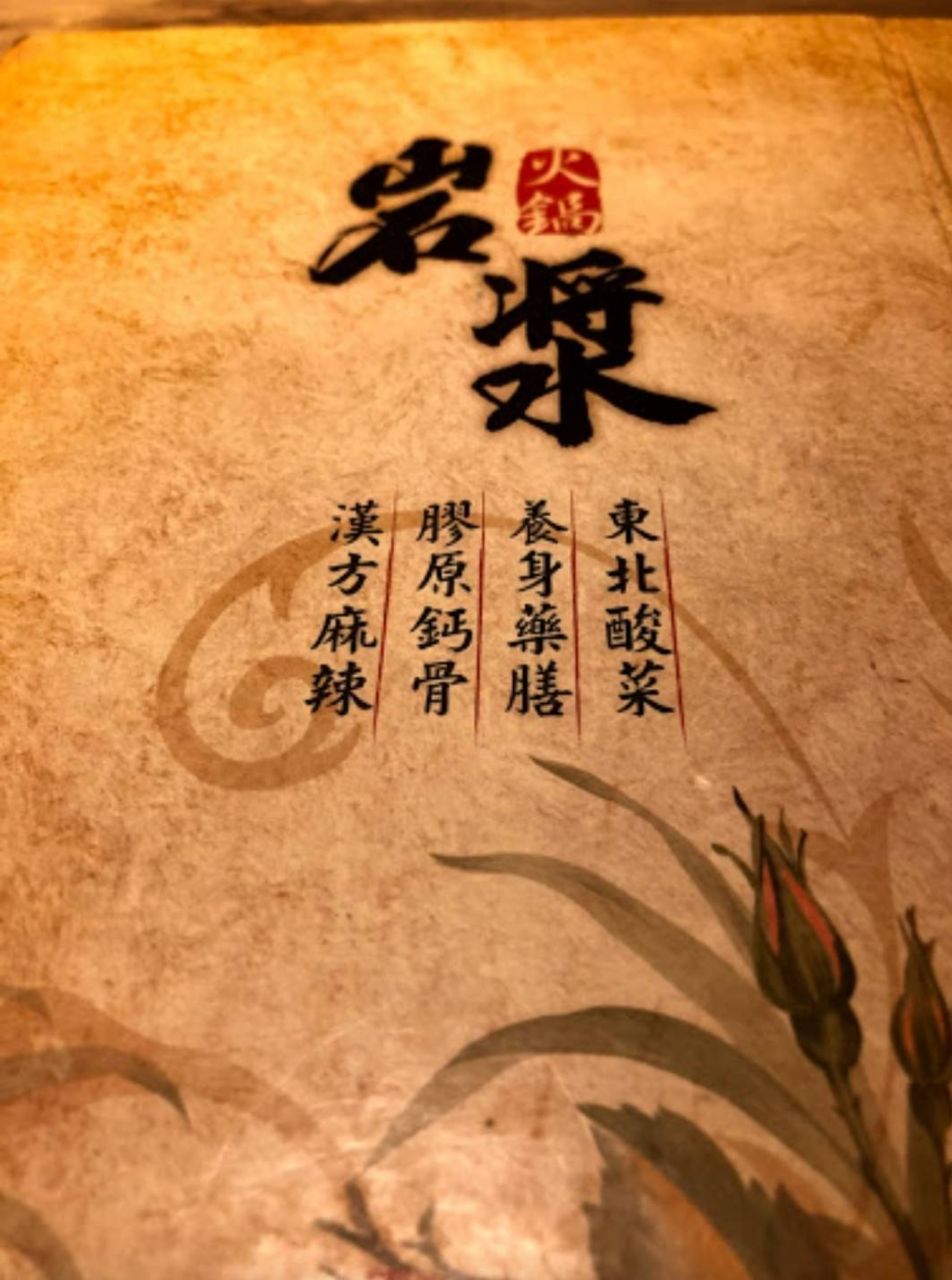 岩漿
火鍋
東北酸菜
養身藥膳
膠原鈣骨
漢方麻辣